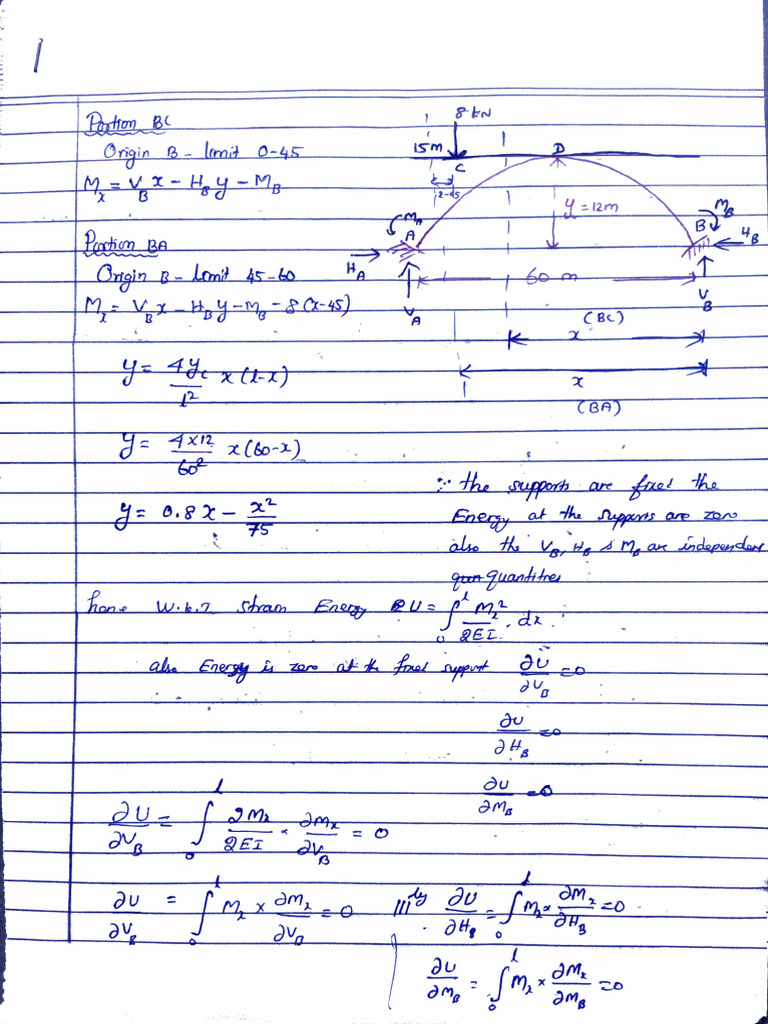 1
Portion BC
Origin B - limit 0-45
Mₓ = V_B x - H_B y - M_B
Portion BA
Origin B - limit 45-60
Mₓ = V_B x - H_B y - M_B - 8(x-45)
8 kN
15m
C
D
x-45
y = 12m
M_A
A
H_A
V_A
60 m
B
M_B
H_B
V_B
(BC)
x
x
(BA)
y = 4y_c/l² x(l-x)
y = 4×12/60² x(60-x)
y = 0.8x - x²/75
∵ the supports are fixed the
Energy at the supports are zero
also the V_B, H_B & M_B are independent
quantities
W.k.T Strain Energy U = ∫₀ˡ Mₓ²/2EI . dx
also Energy is zero at the fixed support ∂U/∂V_B = 0
∂U/∂H_B = 0
∂U/∂M_B = 0
∂U/∂V_B = ∫₀ˡ 2Mₓ/2EI × ∂Mₓ/∂V_B = 0
∂U/∂V_B = ∫₀ˡ Mₓ × ∂Mₓ/∂V_B = 0 |||ly ∂U/∂H_B = ∫₀ˡ Mₓ × ∂Mₓ/∂H_B = 0
∂U/∂M_B = ∫₀ˡ Mₓ × ∂Mₓ/∂M_B = 0